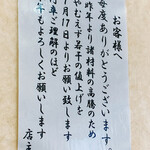 お客様へ
毎度ありがとうございます。
昨年より諸材料の高騰のため
やむえず若干の値上げを
7月17日よりお願い致します
何卒ご理解のほど
よろしくお願いします
店主